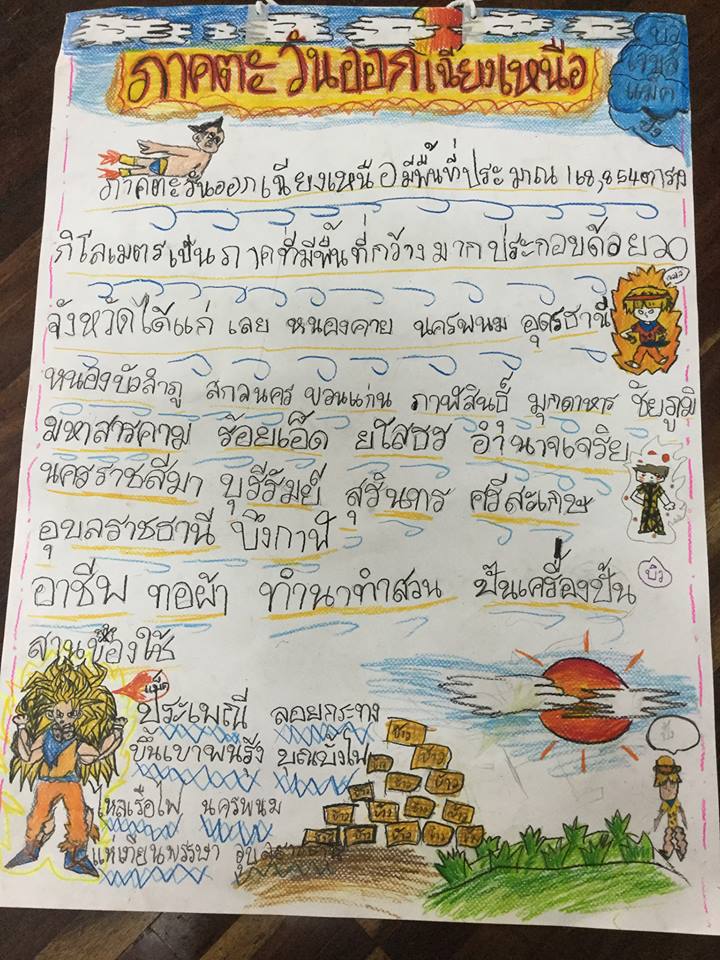 ภาคตะวันออกเฉียงเหนือ
บิว
แม็ค
ปัง
ภาคตะวันออกเฉียงเหนือมีพื้นที่ประมาณ 168,854ตาราง
กิโลเมตรเป็นภาคที่มีพื้นที่กว้างมากประกอบด้วย20
จังหวัดได้แก่ เลย หนองคาย นครพนม อุดรธานี
หนองบัวลำภู สกลนคร ขอนแก่น กาฬสินธุ์ มุกดาหาร ชัยภูมิ
มหาสารคาม ร้อยเอ็ด ยโสธร อำนาจเจริย
นครราชสีมา บุรีรัมย์ สุรินทร ศรีสะเกษ
อุบลราชธานี บึงกาฬ
บิว
อาชีพ ทอผ้า ทำนาทำสวน ปั้นเครื่องปั้น
สานข้องใช้
แม็ค
ประเพณี ลอยกระทง
ขึ้นเขาพนรุ้ง บุญบั้งไฟ
ไหลเรือไฟ นครพนม
แห่เทียนพรรษา
ปัง
ข้าว
ข้าว
ข้าว
ข้าว
ข้าว
ข้าว
ข้าว
ข้าว
ข้าว
ข้าว
ข้าว
ข้าว
ข้าว